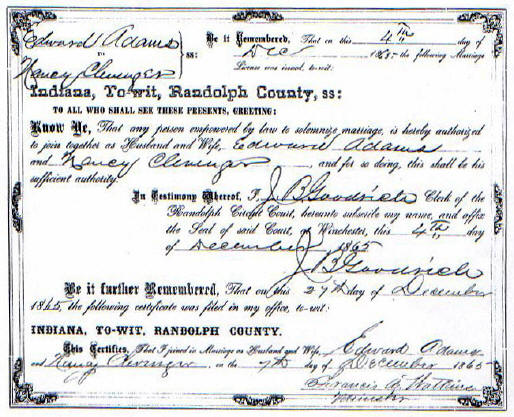 Edward Adams
to
Nancy Clevenger
ss:
Be it Remembered, That on this 4th day of
Dec 1865 the following Marriage
License was issued, to-wit:
Indiana, To-wit, Randolph County, ss:
TO ALL WHO SHALL SEE THESE PRESENTS, GREETING:
Know Ye, That any person empowered by law to solemnize marriage, is hereby authorized
to join together as Husband and Wife, Edward Adams
and Nancy Clevenger, and for so doing, this shall be his
sufficient authority.
In Testimony Whereof, I, J B Goodrich Clerk of the
Randolph Circuit Court, hereunto subscribe my name, and affix
the Seal of said Court, at Winchester, this 4th day
of December 1865
J B Goodrich
Be it further Remembered, That on this 27th day of December
1865, the following certificate was filed in my office, to-wit:
INDIANA, TO-WIT, RANDOLPH COUNTY.
This Certifies, That I joined in Marriage as Husband and Wife, Edward Adams
and Nancy Clevenger on the 7th day of December 1865
Francis
Minister